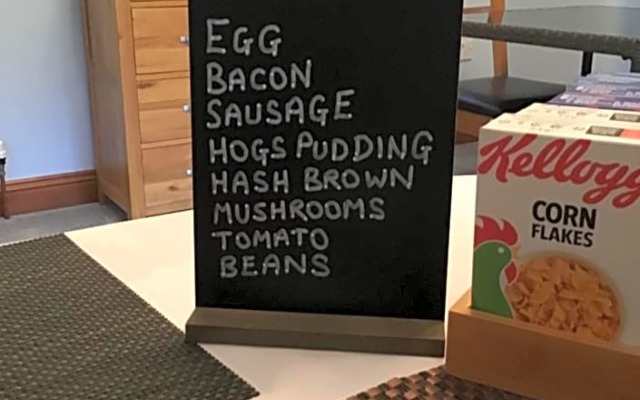 EGG
BACON
SAUSAGE
HOGS PUDDING
HASH BROWN
MUSHROOMS
TOMATO
BEANS
Kellogg
CORN
FLAKES